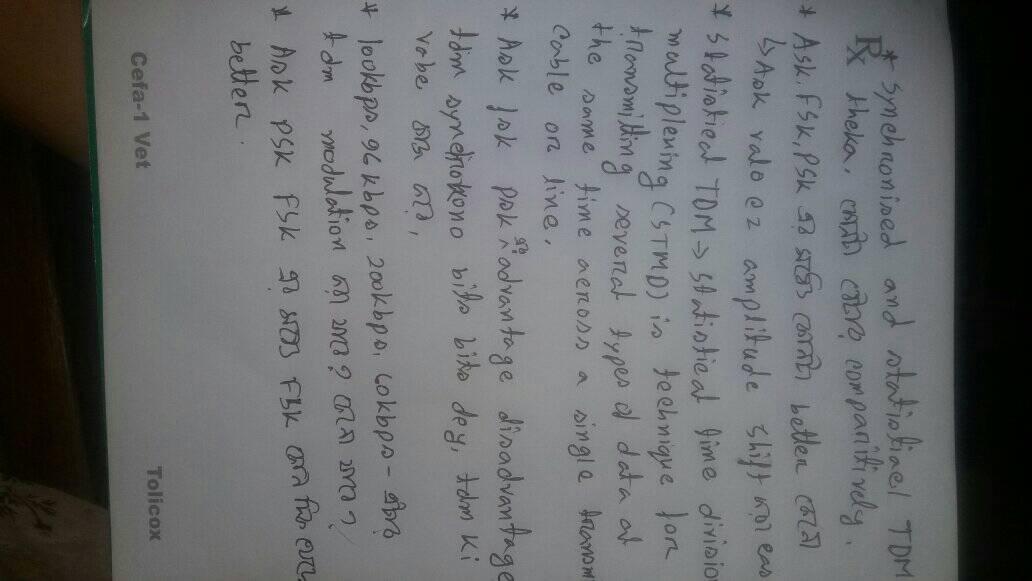 * Synchronised and statistical TDM
Rx theka. কোনটা বেটার comparitively.
* Ask, FSK, PSK এর মধ্যে কোনটা better কেনো
↳ Ask valo ez amplitude shift করা eas
* Statistical TDM → statistical time divisio
multiplexing (STMD) is technique for
transmitting several types of data at
the same time across a single transm
Cable or line.
* Ask fsk psk এর advantage disadvantage
tdm bits bits dey, tdm ki
vabe কাজ করে,
* 100kbps, 96 kbps, 200kbps, 60kbps - এটার
tdm modulation করা যাবে? কেনো যাবে?
* Ask PSK FSK এর মধ্যে FSK কোন দিক থেকে
better.
Cefa-1 Vet
Tolicox